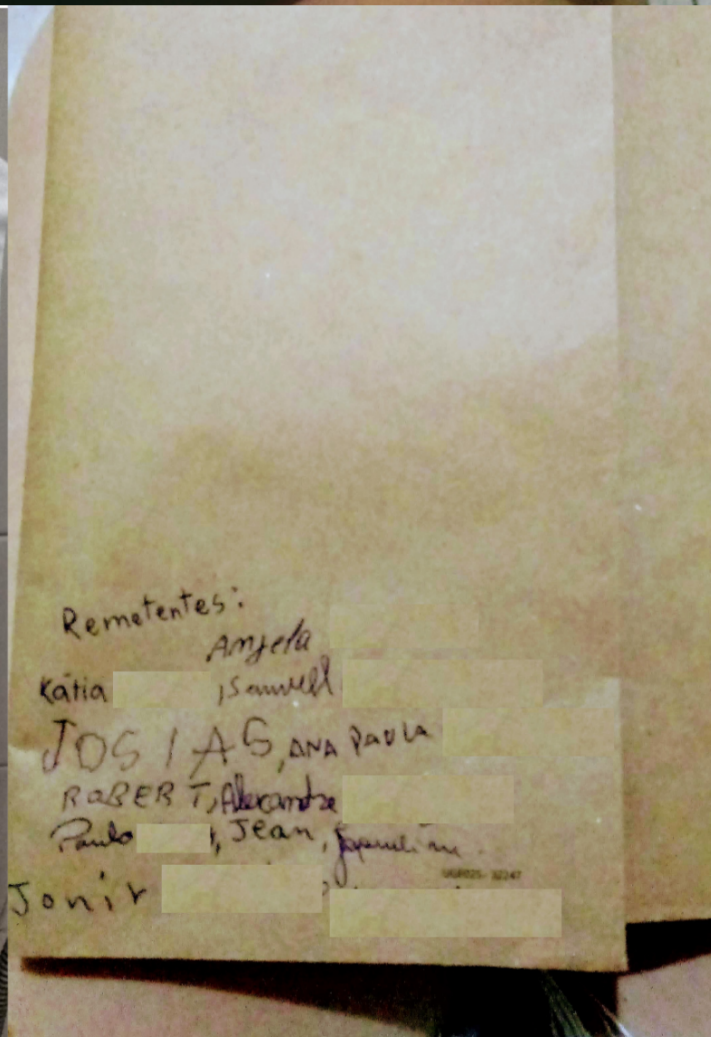 Remetentes:
Angela
Kátia ,Samuell
JOSIAS, ANA PAULA
ROBERT, Alexandre
Paulo , Jean,
Jonir